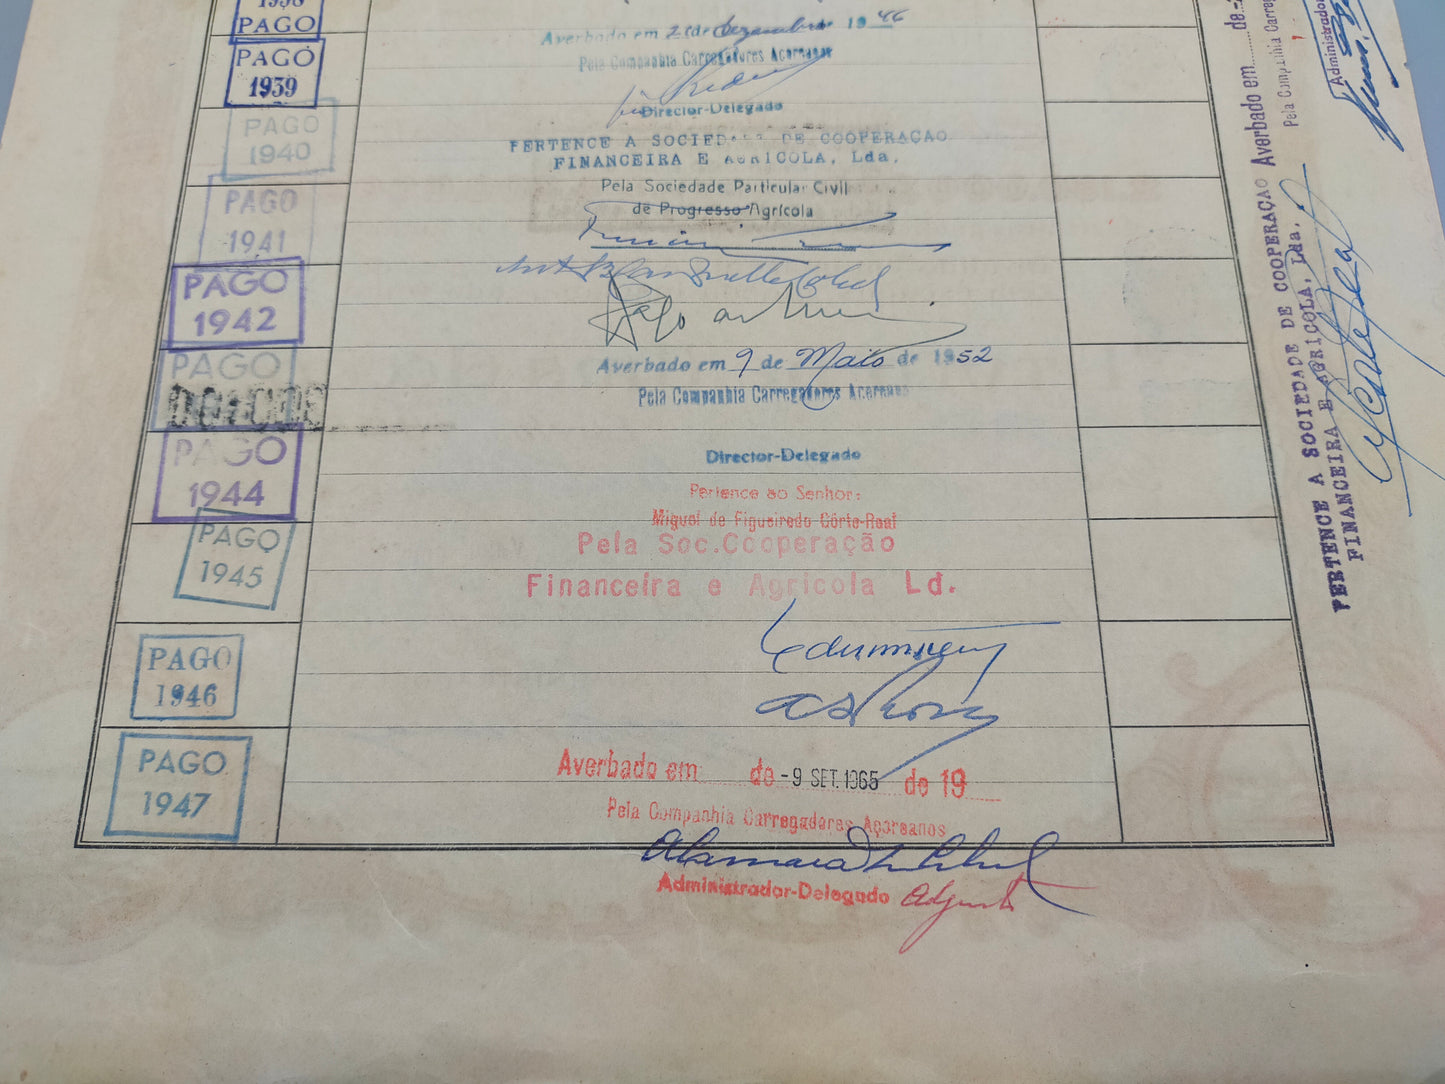 1938
PAGO
PAGO
1939
PAGO
1940
PAGO
1941
PAGO
1942
PAGO
PAGO
1944
PAGO
1945
PAGO
1946
PAGO
1947
Averbado em 2 de Dezembro 1946
Pela Companhia Carregadores Açoreanos
Director-Delegado
PERTENCE A SOCIEDADE DE COOPERAÇAO
FINANCEIRA E AGRICOLA, Lda,
Pela Sociedade Particular Civil
de Progresso Agrícola
Averbado em 9 de Maio de 1952
Pela Companhia Carregadores Açoreanos
Director-Delegado
Pertence ao Senhor:
Miguel de Figueiredo Côrte-Real
Pela Soc.Cooperação
Financeira e Agricola Ld.
Averbado em de -9 SET. 1965 de 19
Pela Companhia Carregadores Açoreanos
Administrador-Delegado
PERTENCE A SOCIEDADE DE COOPERAÇAO
FINANCEIRA E AGRICOLA, Lda,
Averbado em de
Pela Companhia Carreg
Administrador